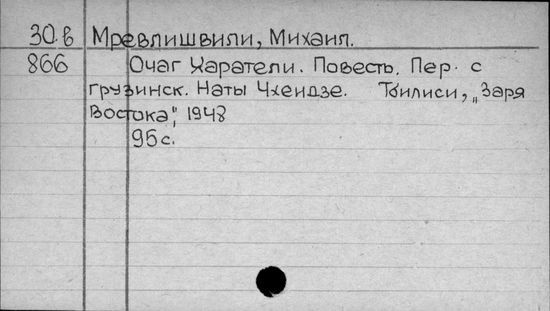 30.в Мревлишвили, Михаил.
866 Очаг Харатели. Повесть. Пер. с
грузинск. Наты Чхеидзе. Тбилиси, „Заря
Востока", 1948
95с.